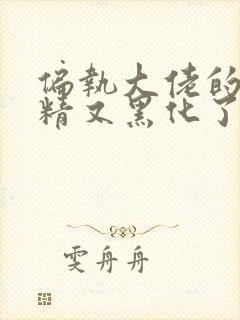 偏执大佬的
精又黑化了
雯舟舟